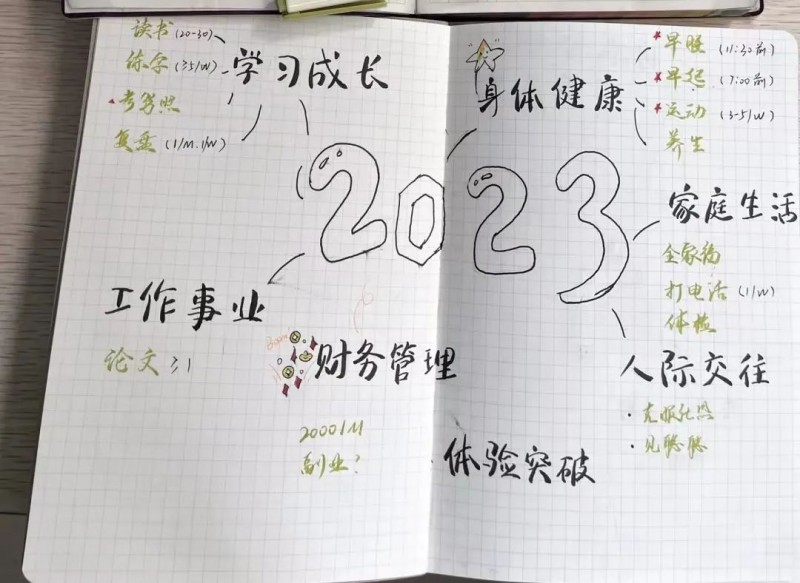 读书 (20-30)
练字 (≥5/W)
考驾照
复盘 (1/M.1/W)
学习成长
身体健康
早睡 (11:30前)
早起 (7:00前)
运动 (3-5/W)
养生
2023
家庭生活
全家福
打电话 (1/W)
体检
工作事业
论文 ≥1
财务管理
2000/M
副业?
人际交往
· 克服社恐
· 见聪聪
体验突破